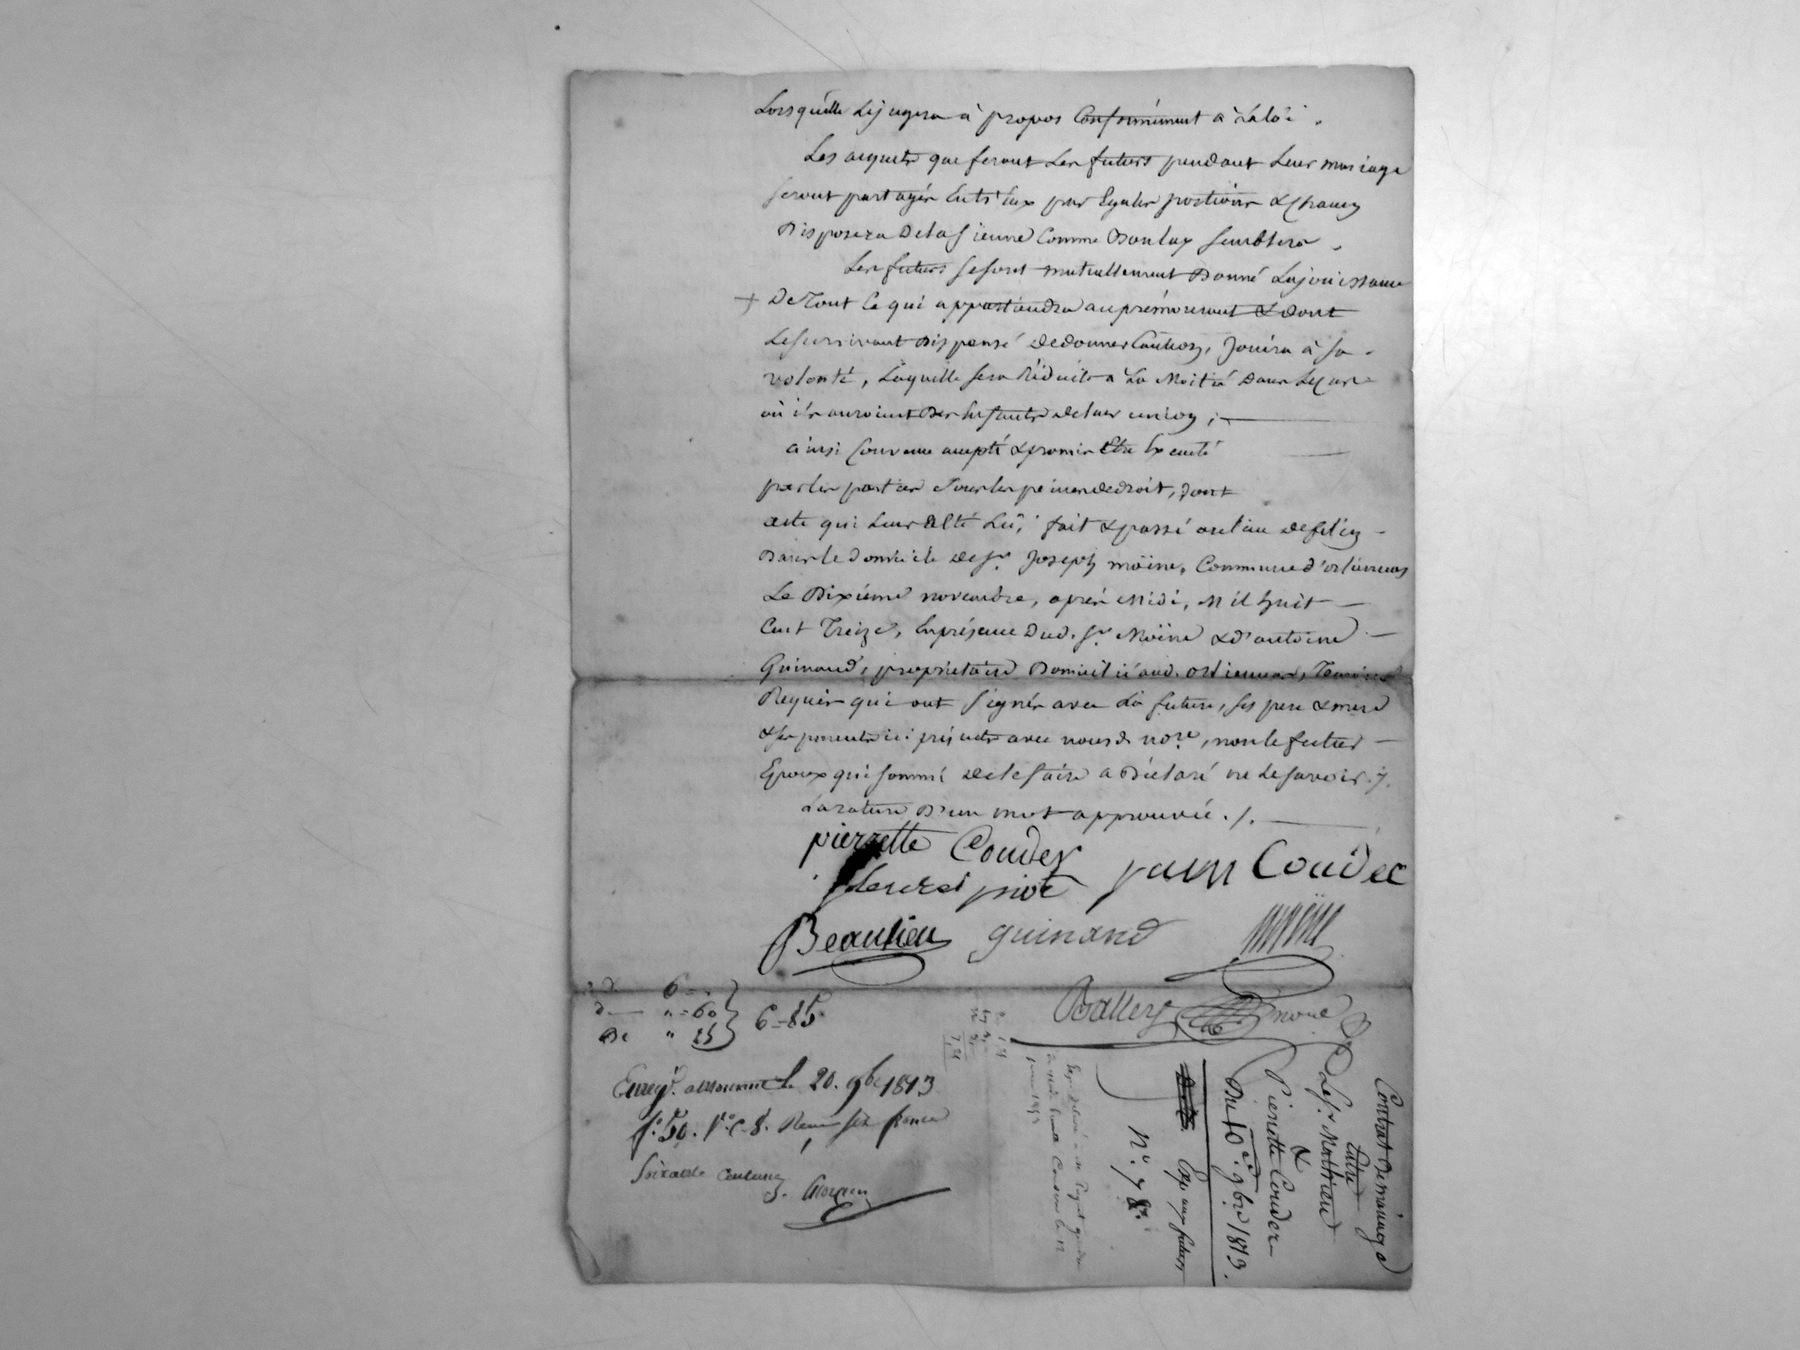 Lorsqu'elle le jugera à propos Conformément a la loi.
Les acquets que feront les futurs pendant leur mariage
seront partagés entr'eux par Egales portions & Chacun
Disposera de la sienne Comme Bon luy semblera.
Les futurs se sont mutuellement Donné la jouissance
+ De Tout Ce qui appartiendra au prémourant & dont
le survivant Dispensé de donner Caution, Jouira à sa
volonté, Laquelle sera Réduite a La Moitié Dans le Cas
où ils auroient Des Enfants de leur union ;
ainsi Convenu accepté & promis Etre Exécuté
par les parties sous les peines de droit, dont
acte qui leur a Eté Lû, fait & passé au lieu de
Dans le domicile de Sr. Joseph moïne, Commune d'orliennas
Le Dixième novembre, après Midi, Mil huit
Cent Treize, En présence Dud. Sr. Moïne & d'antoine
Guinand, propriétaire Domicilié aud. orliennas, Temoins
Requis qui ont signés avec la future, ses pere & mere
& ses parents ici présents avec nous d. nore, non le futur
Epoux qui sommé de le faire a Déclaré ne le savoir ./.
La rature D'un mot approuvée ./.
pierrette Couder
Couder
Beaulieu guinand
moïne
Ballery nore
6 "
" = 60
De " 25
6 = 85
Enregé. a Mornant le 20. 9bre 1813
fo. 50. Vo. C. 8. Reçu six francs
soixante centimes
Contrat De mariage
Entre
Le Sr. Mathieu
&
Pierrette Couder
Du 10e. 9bre 1813.
Exp aux futurs
no. 78.